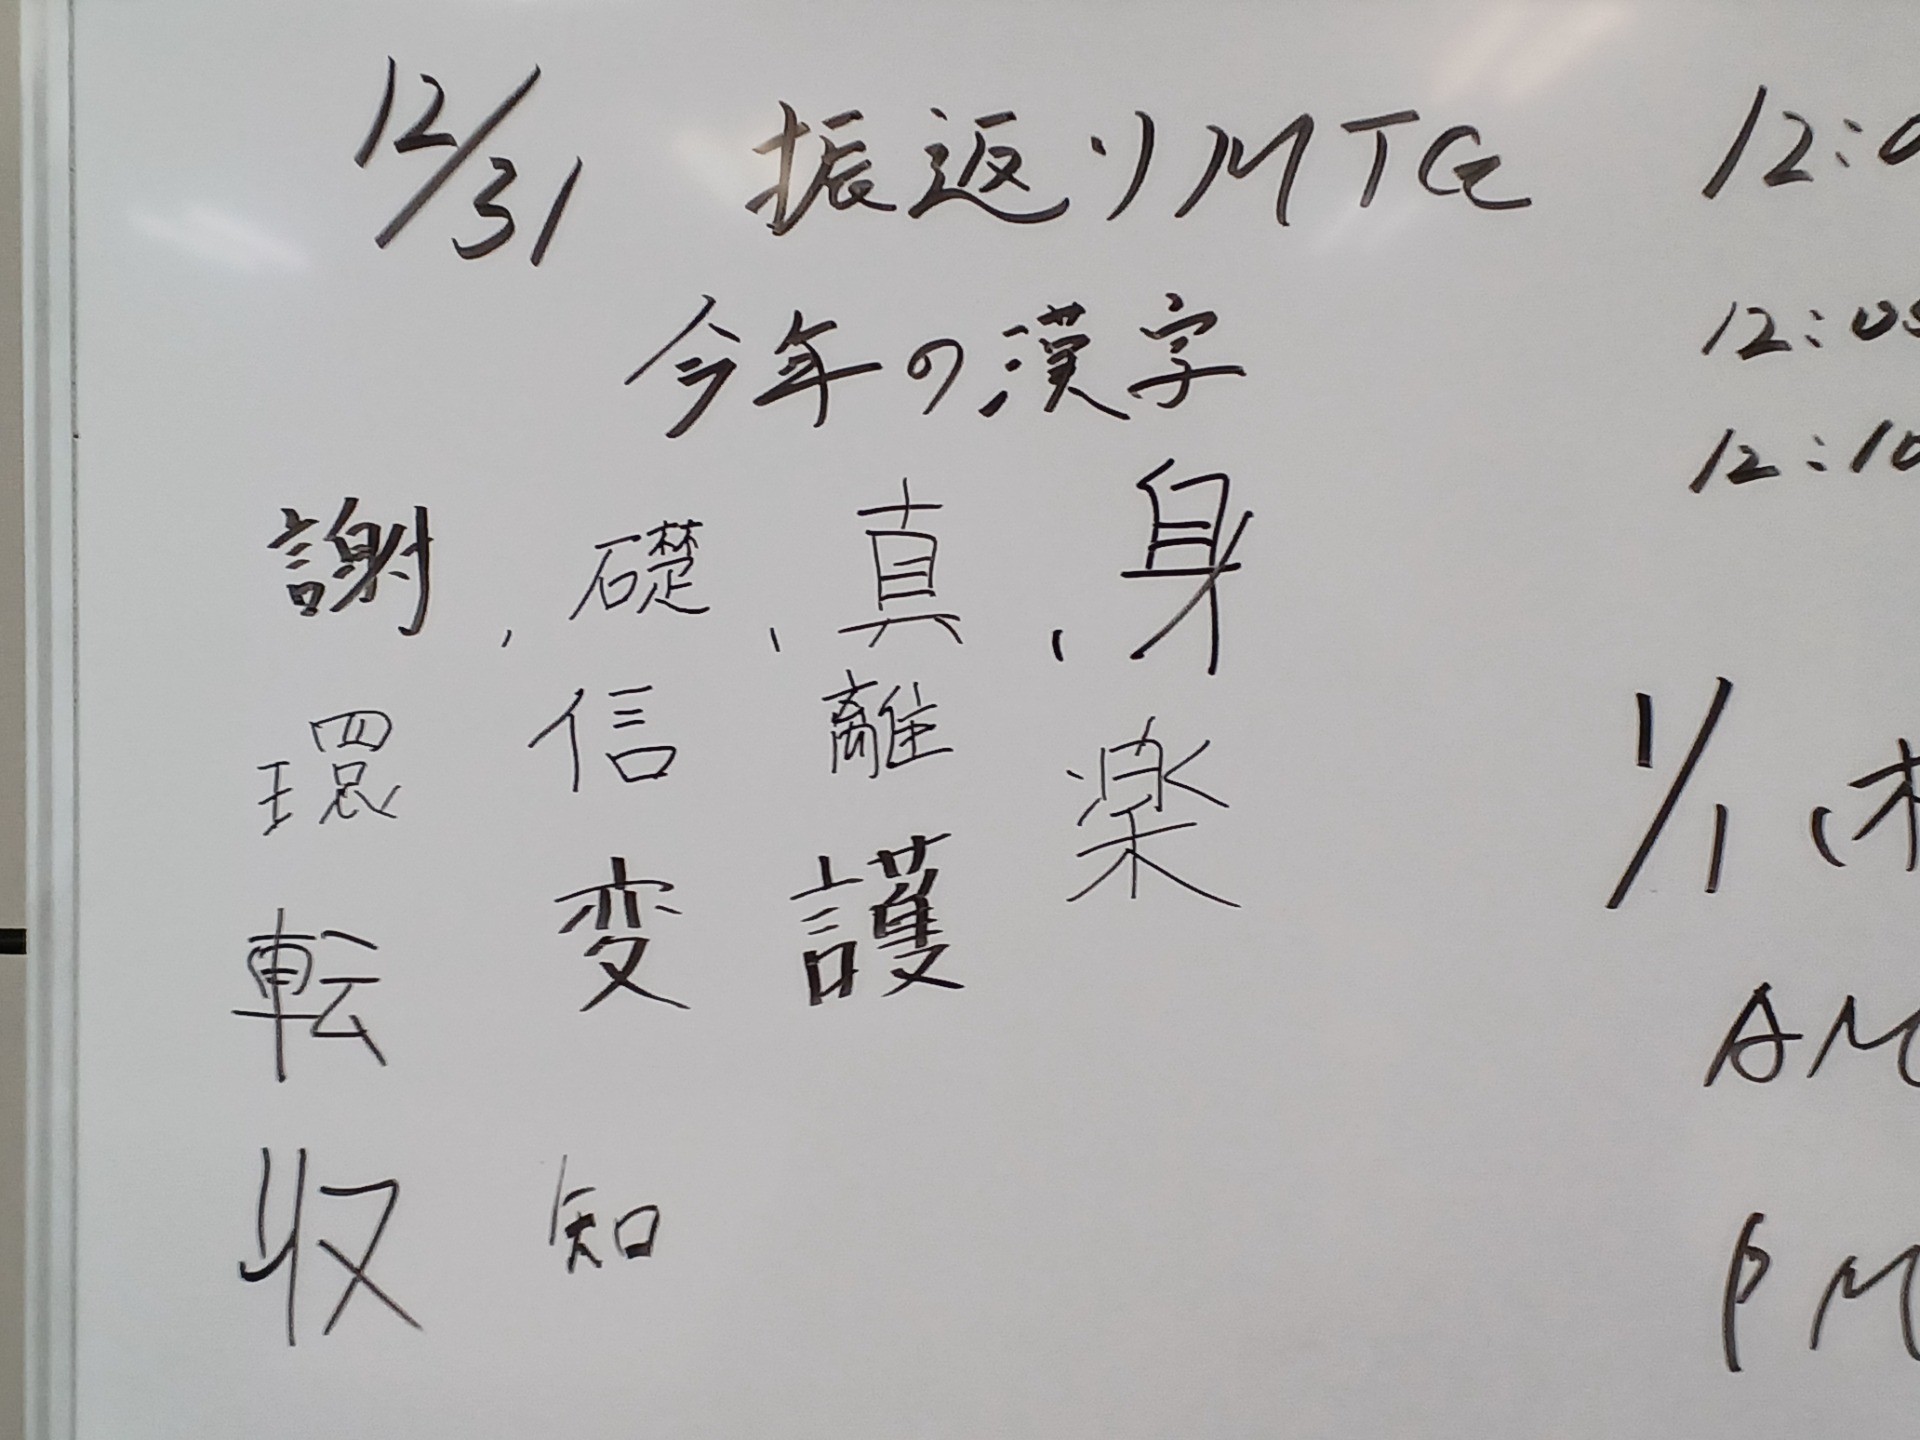 12/31 振返りMTG
今年の漢字
謝、礎、真、身
環 信 離 楽
転 変 護
収 知
12:0
12:05
12:10
1/1 (木
AM
PM